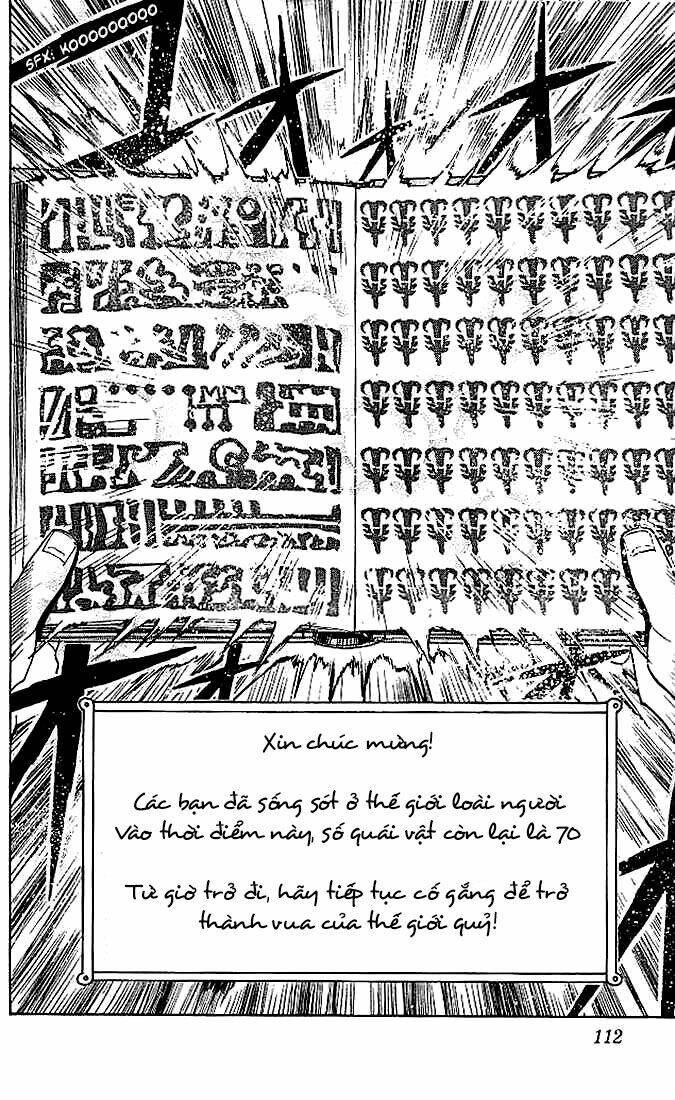 SFX: KOOOOOOOOO
Xin chúc mừng!
Các bạn đã sống sót ở thế giới loài người
Vào thời điểm này, số quái vật còn lại là 70
Từ giờ trở đi, hãy tiếp tục cố gắng để trở
thành vua của thế giới quỷ!
112